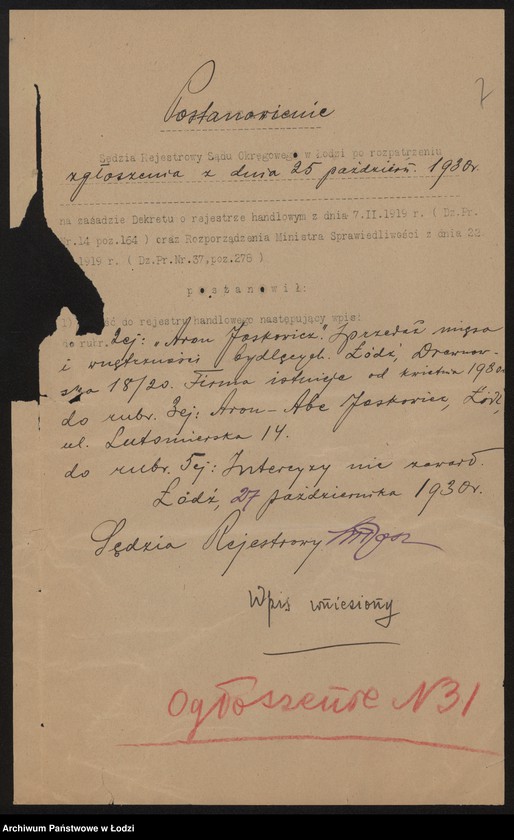 7
Postanowienie
Sędzia Rejestrowy Sądu Okręgowego w Łodzi po rozpatrzeniu
zgłoszenia z dnia 25 paździer. 1930r.
na zasadzie Dekretu o rejestrze handlowym z dnia 7.II.1919 r. ( Dz.Pr.
Nr.14 poz.164 ) oraz Rozporządzenia Ministra Sprawiedliwości z dnia 22
1919 r. ( Dz.Pr.Nr.37,poz.278 )
p o s t a n o w i ł:
do rejestru handlowego następujący wpis:
do rubr. 2ej: „Aron Joskowicz." Sprzedaż mięsa
i wnętrzności bydlęcych. Łódź, Drewnow-
ska 18/20. Firma istnieje od kwietnia 1930r.
do rubr. 3ej: Aron-Abe Joskowicz, Łódź,
ul. Lutomierska 14.
do rubr. 5ej: Intercyzy nie zawarł.
Łódź, 27 października 1930r.
Sędzia Rejestrowy
Wpis wniesiony
Ogłoszenie N31
Archiwum Państwowe w Łodzi